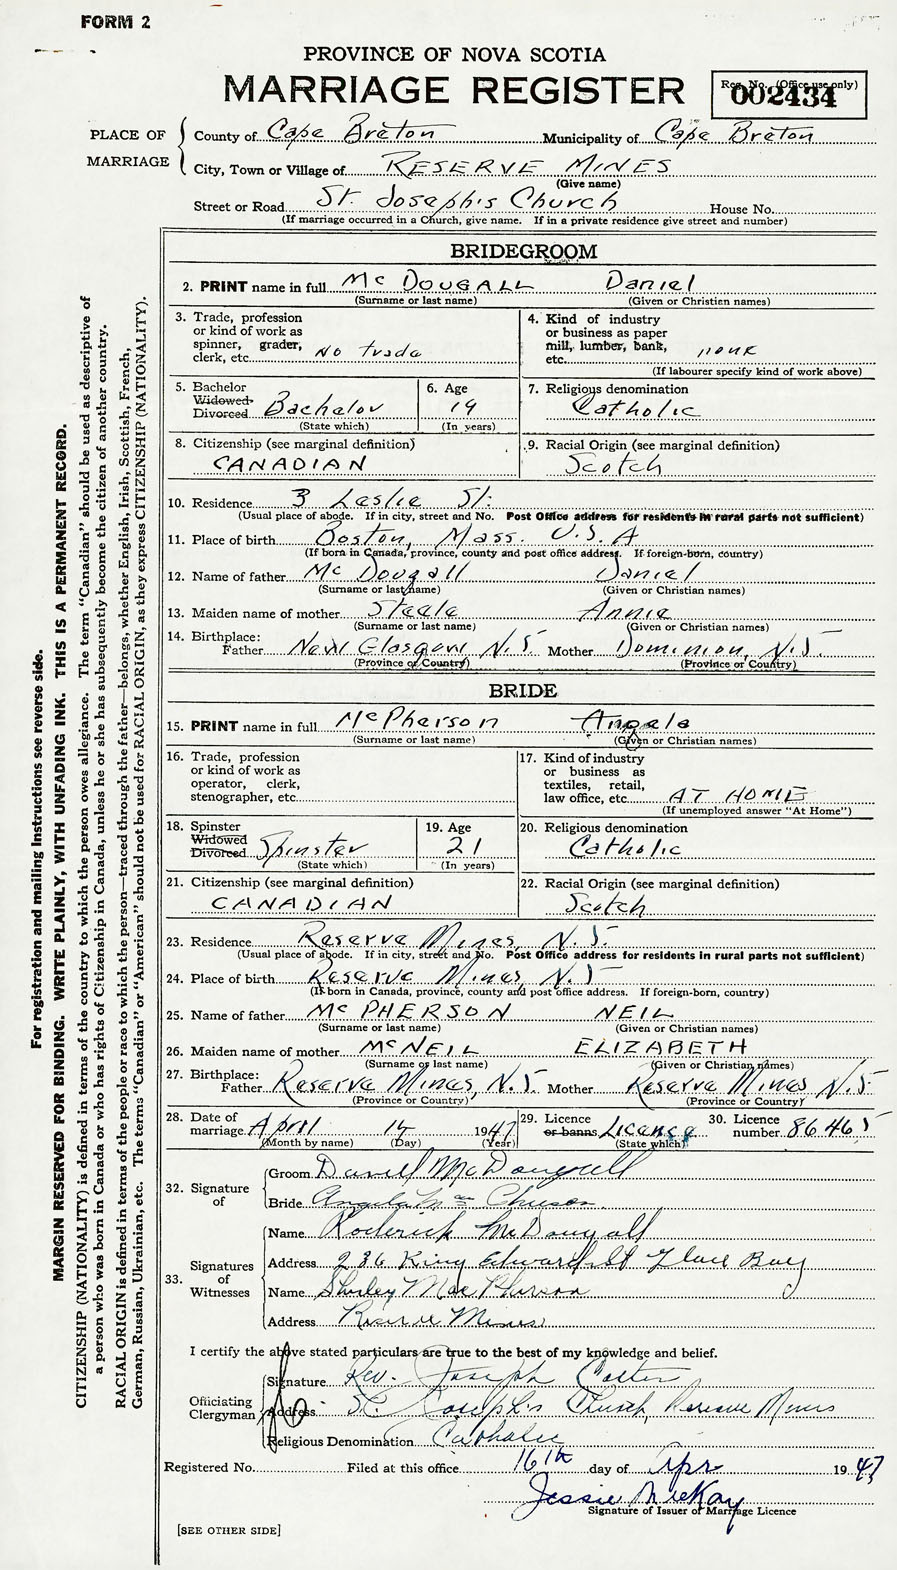 FORM 2
PROVINCE OF NOVA SCOTIA
MARRIAGE REGISTER
Reg. No. (Office use only)
002434
PLACE OF MARRIAGE
County of Cape Breton Municipality of Cape Breton
City, Town or Village of RESERVE MINES
(Give name)
Street or Road St. Joseph's Church House No.
(If marriage occurred in a Church, give name. If in a private residence give street and number)
BRIDEGROOM
2. PRINT name in full McDOUGALL Daniel
(Surname or last name) (Given or Christian names)
3. Trade, profession or kind of work as spinner, grader, clerk, etc. No trade
4. Kind of industry or business as paper mill, lumber, bank, etc. none
(If labourer specify kind of work above)
5. Bachelor Widowed Divorced Bachelor
(State which)
6. Age 19
(In years)
7. Religious denomination Catholic
8. Citizenship (see marginal definition) CANADIAN
9. Racial Origin (see marginal definition) Scotch
10. Residence 3 Leslie St.
(Usual place of abode. If in city, street and No. Post Office address for residents in rural parts not sufficient)
11. Place of birth Boston, Mass. U.S.A
(If born in Canada, province, county and post office address. If foreign-born, country)
12. Name of father McDougall Daniel
(Surname or last name) (Given or Christian names)
13. Maiden name of mother Steele Annie
(Surname or last name) (Given or Christian names)
14. Birthplace: Father New Glasgow N.S Mother Dominion, N.S
(Province or Country) (Province or Country)
BRIDE
15. PRINT name in full McPherson Angela
(Surname or last name) (Given or Christian names)
16. Trade, profession or kind of work as operator, clerk, stenographer, etc.
17. Kind of industry or business as textiles, retail, law office, etc. AT HOME
(If unemployed answer "At Home")
18. Spinster Widowed Divorced Spinster
(State which)
19. Age 21
(In years)
20. Religious denomination Catholic
21. Citizenship (see marginal definition) CANADIAN
22. Racial Origin (see marginal definition) Scotch
23. Residence Reserve Mines, N.S.
(Usual place of abode. If in city, street and No. Post Office address for residents in rural parts not sufficient)
24. Place of birth Reserve Mines, N.S
(If born in Canada, province, county and post office address. If foreign-born, country)
25. Name of father McPHERSON NEIL
(Surname or last name) (Given or Christian names)
26. Maiden name of mother McNEIL ELIZABETH
(Surname or last name) (Given or Christian names)
27. Birthplace: Father Reserve Mines, N.S Mother Reserve Mines N.S
(Province or Country) (Province or Country)
28. Date of marriage April 14 1947
(Month by name) (Day) (Year)
29. Licence or banns Licence
(State which)
30. Licence number 86465
32. Signature of
Groom Daniel McDougall
Bride Angela
33. Signatures of Witnesses
Name Roderick McDougall
Address 236 King Edward St Glace Bay
Name Shirley MacPherson
Address Reserve Mines
I certify the above stated particulars are true to the best of my knowledge and belief.
Officiating Clergyman
Signature Rev. Joseph
Address St. Joseph's Church, Reserve Mines
Religious Denomination Catholic
Registered No. Filed at this office 16th day of Apr 1947
Jessie McKay
Signature of Issuer of Marriage Licence
[SEE OTHER SIDE]
For registration and mailing instructions see reverse side.
MARGIN RESERVED FOR BINDING. WRITE PLAINLY, WITH UNFADING INK. THIS IS A PERMANENT RECORD.
CITIZENSHIP (NATIONALITY) is defined in terms of the country to which the person owes allegiance. The term "Canadian" should be used as descriptive of
a person who was born in Canada or who has rights of Citizenship in Canada, unless he or she has subsequently become the citizen of another country.
RACIAL ORIGIN is defined in terms of the people or race to which the person—traced through the father—belongs, whether English, Irish, Scottish, French,
German, Russian, Ukrainian, etc. The terms "Canadian" or "American" should not be used for RACIAL ORIGIN, as they express CITIZENSHIP (NATIONALITY).